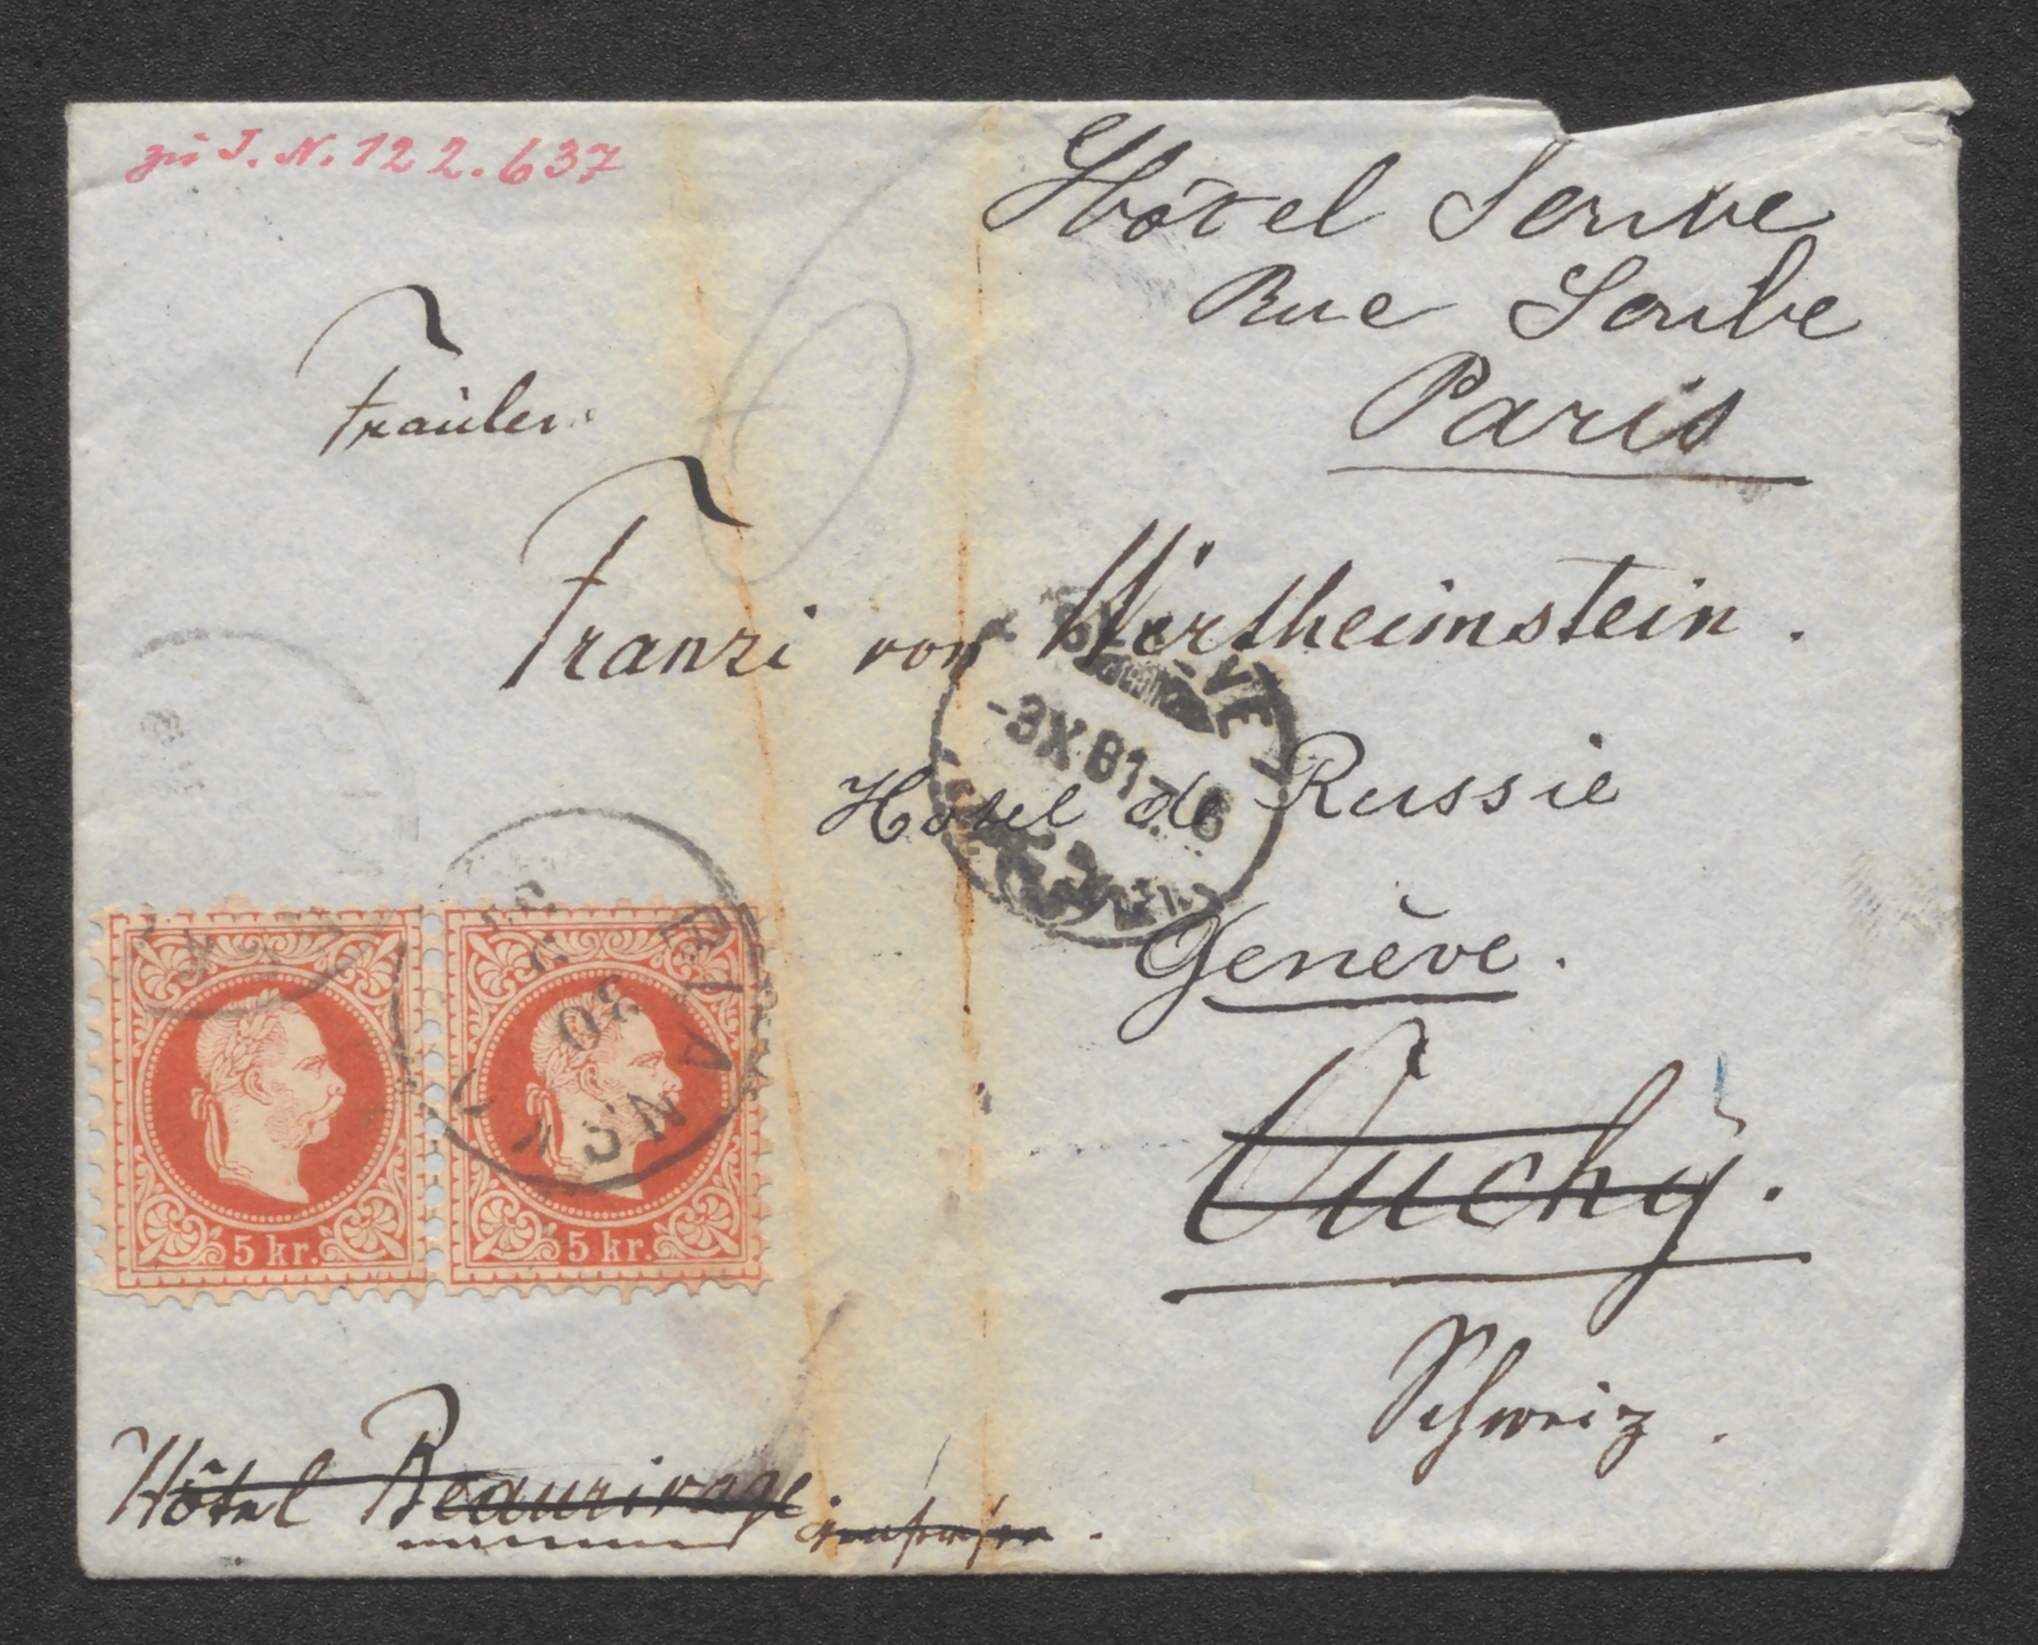 zu I. N. 122.637
Hôtel Scribe
Rue Scribe
Paris
Fräulein
Franzi von Wertheimstein.
Hôtel de Russie
Genève.
-3 X 81 - 6
BLANSKO
30 9
5 kr. 5 kr.
Ouchy.
Schweiz.
Hôtel Beaurivage